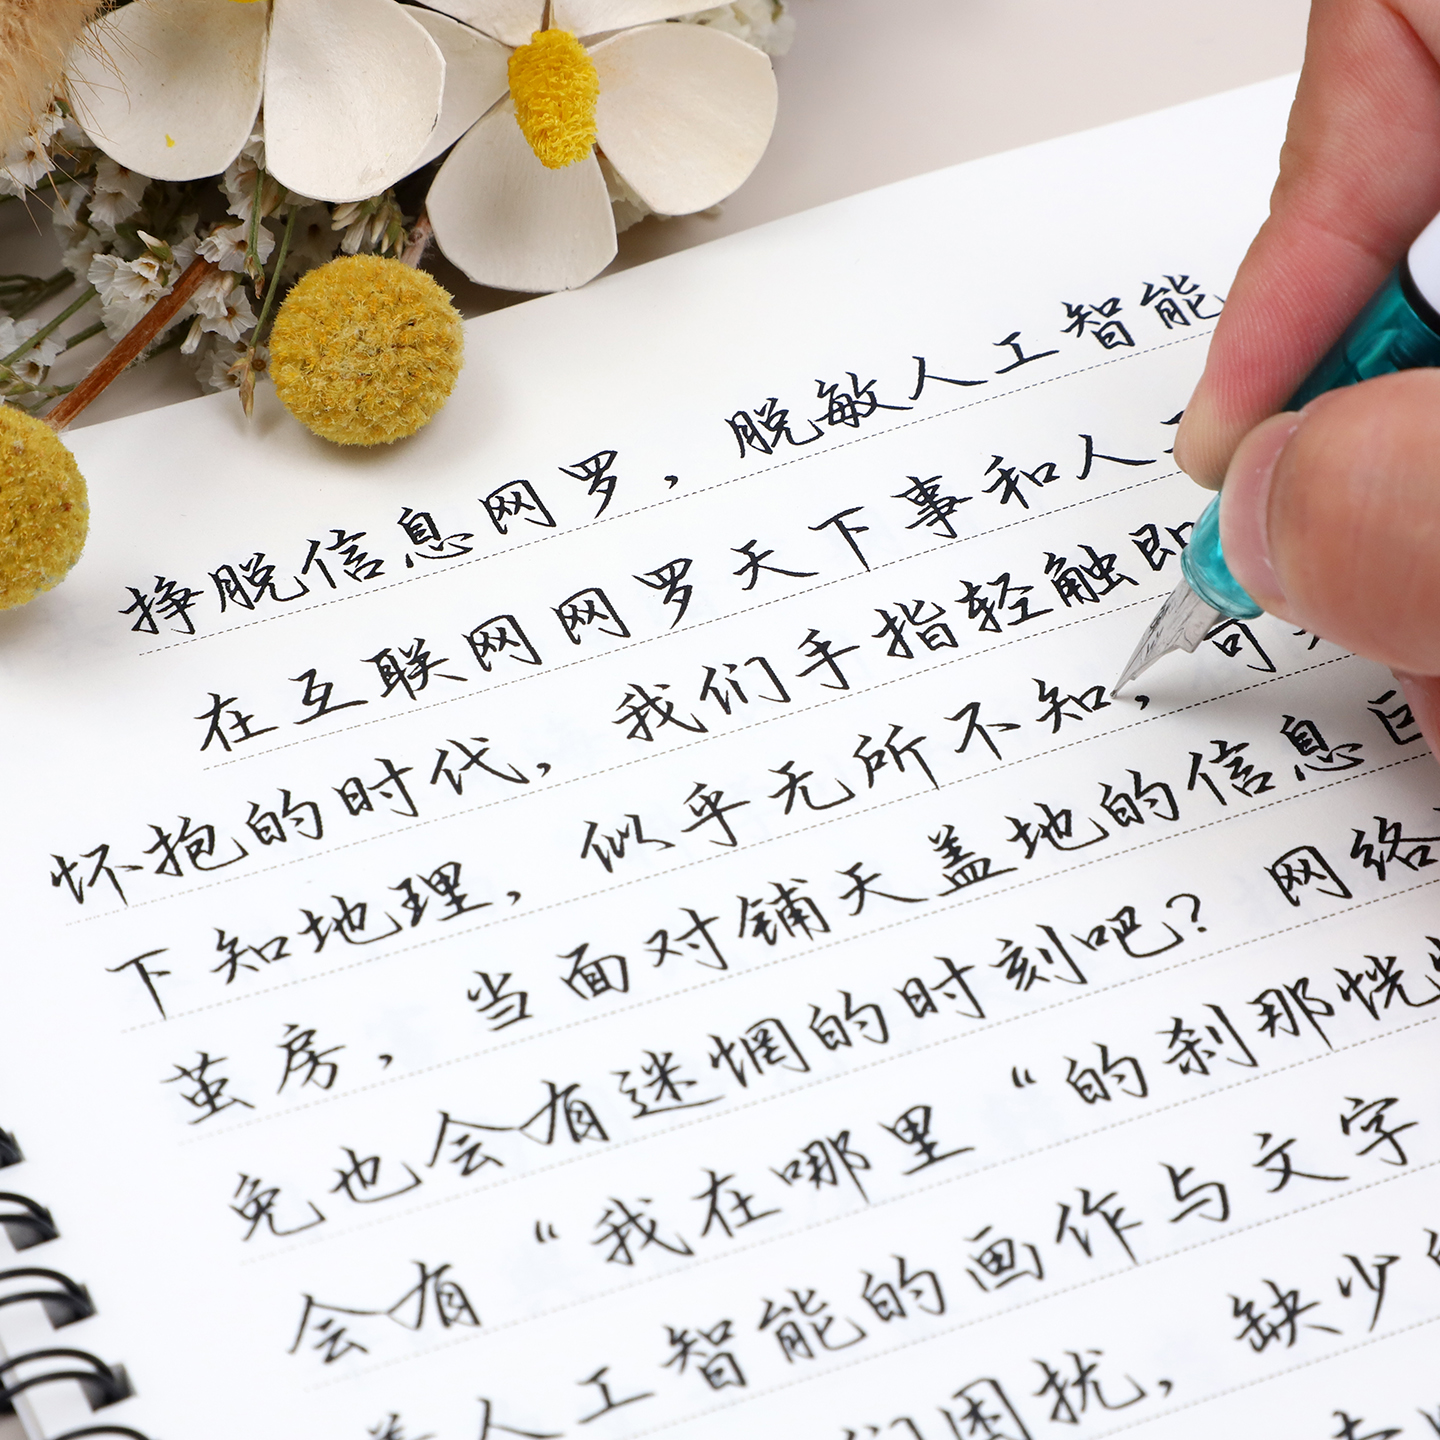 挣脱信息网罗，脱敏人工智能
在互联网网罗天下事和人工
怀抱的时代，我们手指轻触即
下知地理，似乎无所不知，可
茧房，当面对铺天盖地的信息巨
免也会有迷惘的时刻吧？网络
会有“我在哪里“的刹那恍
人工智能的画作与文字
们困扰，缺少